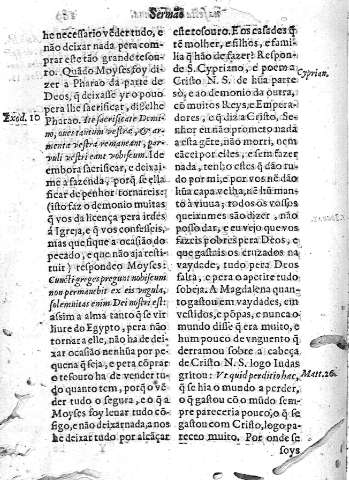 Sermão
he necessario vẽder tudo, e
não deixar nada pera com-
prar este tão grande tesou-
ro. Quãdo Moyses foy di-
zer a Pharao da parte de
Deos, q̃ deixasse yr o pouo
pera lhe sacrificar, diz elhe
Exod. 10
Pharao. Ite sacrificate Domi-
no, oues tantum vestræ, & ar-
menta vestra remaneant, par-
vuli vestri eant vobiscum. Ide
embora sacrificar, e deixai-
me a fazenda, porq̃ se ella
ficar de penhor tornareis:
(isto faz o demonio muitas
q̃ vos dá licença pera irdes
á Igreja, e q̃ vos confesseis,
mas que fique a ocasião do
pecado, e que não aja resti-
tuir) respondeo Moyses:
Cuncti greges pergent nobiscum
non remanebit ex eis vngula,
solemnitas enim Dei nostri est:
assim a alma tanto q̃ se vir
liure do Egypto, pera não
tornar a elle, não ha de dei-
xar ocasião nenhũa por pe-
quena q̃ seja, e pera cõprar
o tesouro ha de vender tu-
do quanto tem, porq̃ o vẽ-
der tudo o segura, e o q̃ a
Moyses foy leuar tudo cõ-
sigo, e não deixar nada, a nos
he deixar tudo por alcãçar
este tesouro. E os casados q̃
tẽ molher, e filhos, e fami-
lia q̃ hão de fazer? Respon-
de S. Cypriano, e poem a
Cyprian.
Cristo N. S. de hũa parte
só, e ao demonio da outra,
cõ muitos Reys, e Empera-
dores, e q̃ diz a Cristo, Se-
nhor eu não prometo nada
a esta gẽte, não morri, nem
cacei por elles, e sem fazer
nada, tenho estes q̃ dão tu-
do por mi, e por vos nẽ dão
hũa capa velha, nẽ hũ man-
tò á viuua, todos os vossos
queixumes são dizer, não
posso dar, e eu vejo que vos
fazeis pobres pera Deos, e
que gastais os cruzados na
vaydade, tudo pera Deos
falta, e pera o apetite tudo
sobeja. A Magdalena quan-
to gastou em vaydades, em
vestidos, e põpas, e nunca o
mundo disse q̃ era muito, e
hum pouco de vnguento q̃
derramou sobre a cabeça
de Cristo N. S. logo Iudas
gritou: Vt quid perditio hæc,
Matt. 26.
q̃ se hia o mundo a perder,
o q̃ gastou cõ o mũdo sem-
pre pareceria pouco, o q̃ se
gastou com Cristo, logo pa-
receo muito. Por onde se
foys